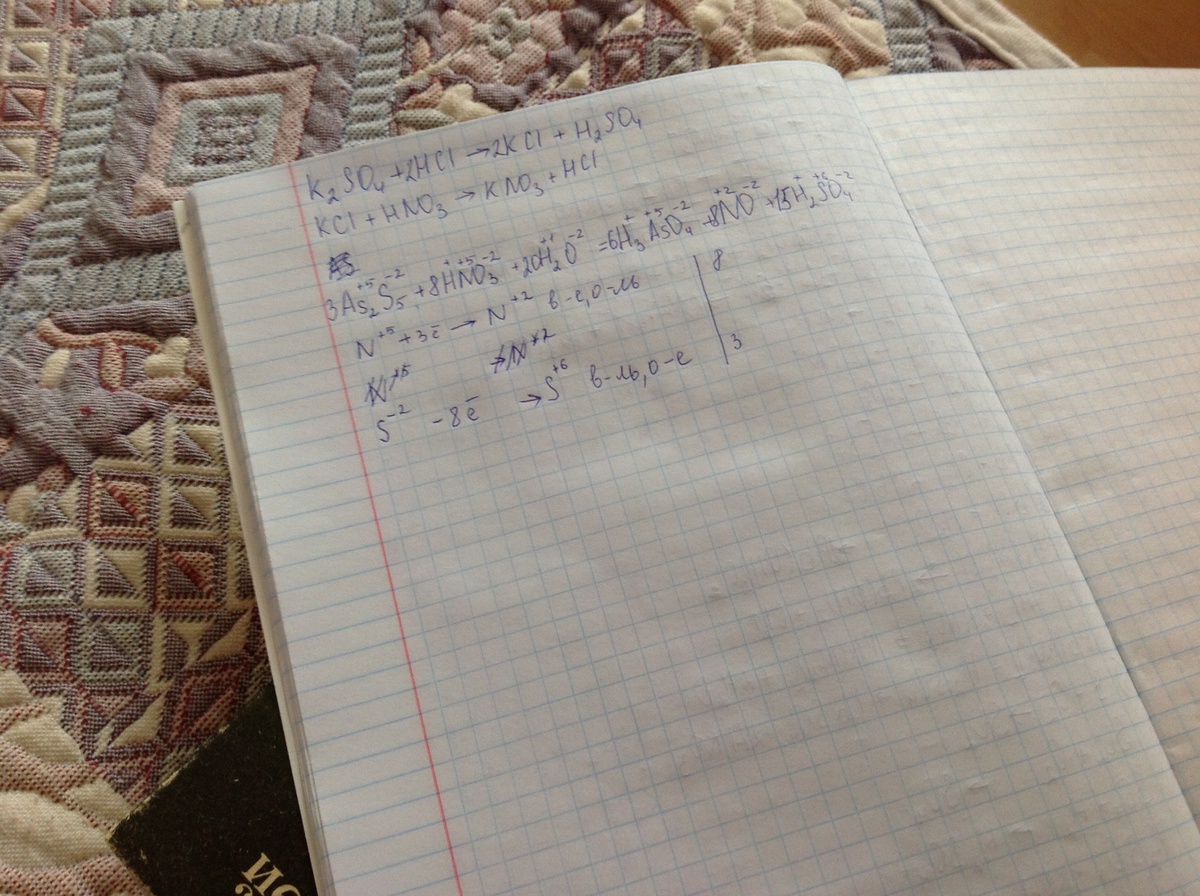 K₂SO₄ + 2HCl → 2KCl + H₂SO₄
KCl + HNO₃ → KNO₃ + HCl
As
3As₂⁺⁵S₅⁻² + 8H⁺N⁺⁵O₃⁻² + 20H₂⁺¹O⁻² = 6H₃⁺As⁺⁵O₄⁻² + 8N⁺²O⁻² + 15H₂⁺S⁺⁶O₄⁻²
N⁺⁵ + 3ē → N⁺² в-е, о-ль | 8
N⁺⁵ → N⁺²
S⁻² - 8ē → S⁺⁶ в-ль, о-е | 3
ИС